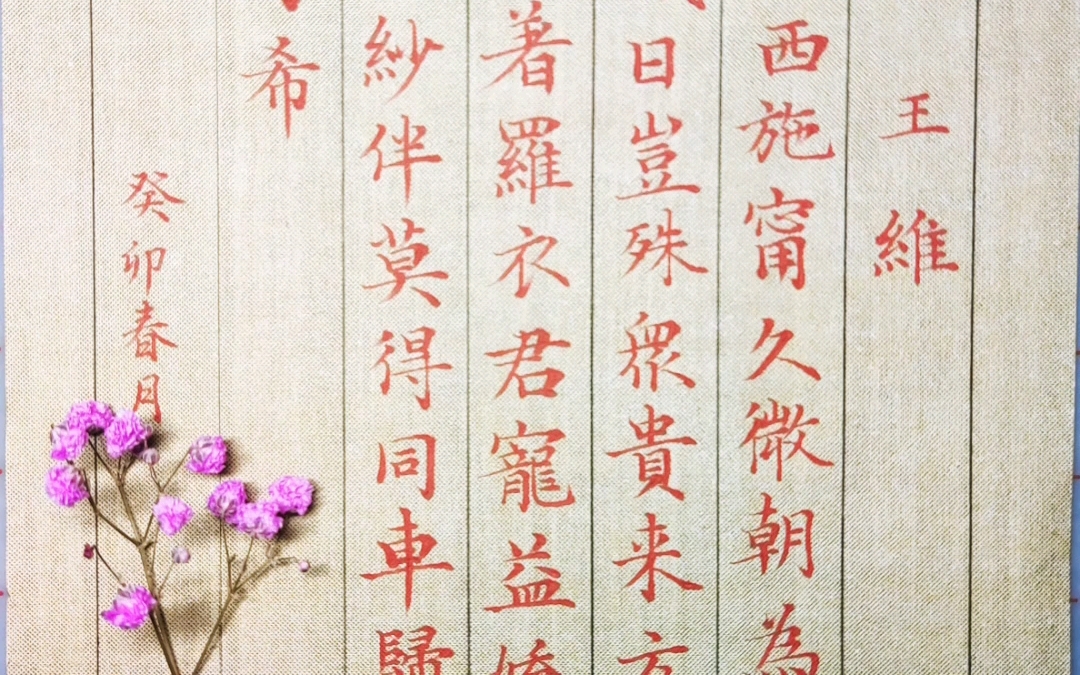 王維
西施甯久微朝為
日豈殊眾貴来方
著羅衣君寵益
紗伴莫得同車歸
希
癸卯春月